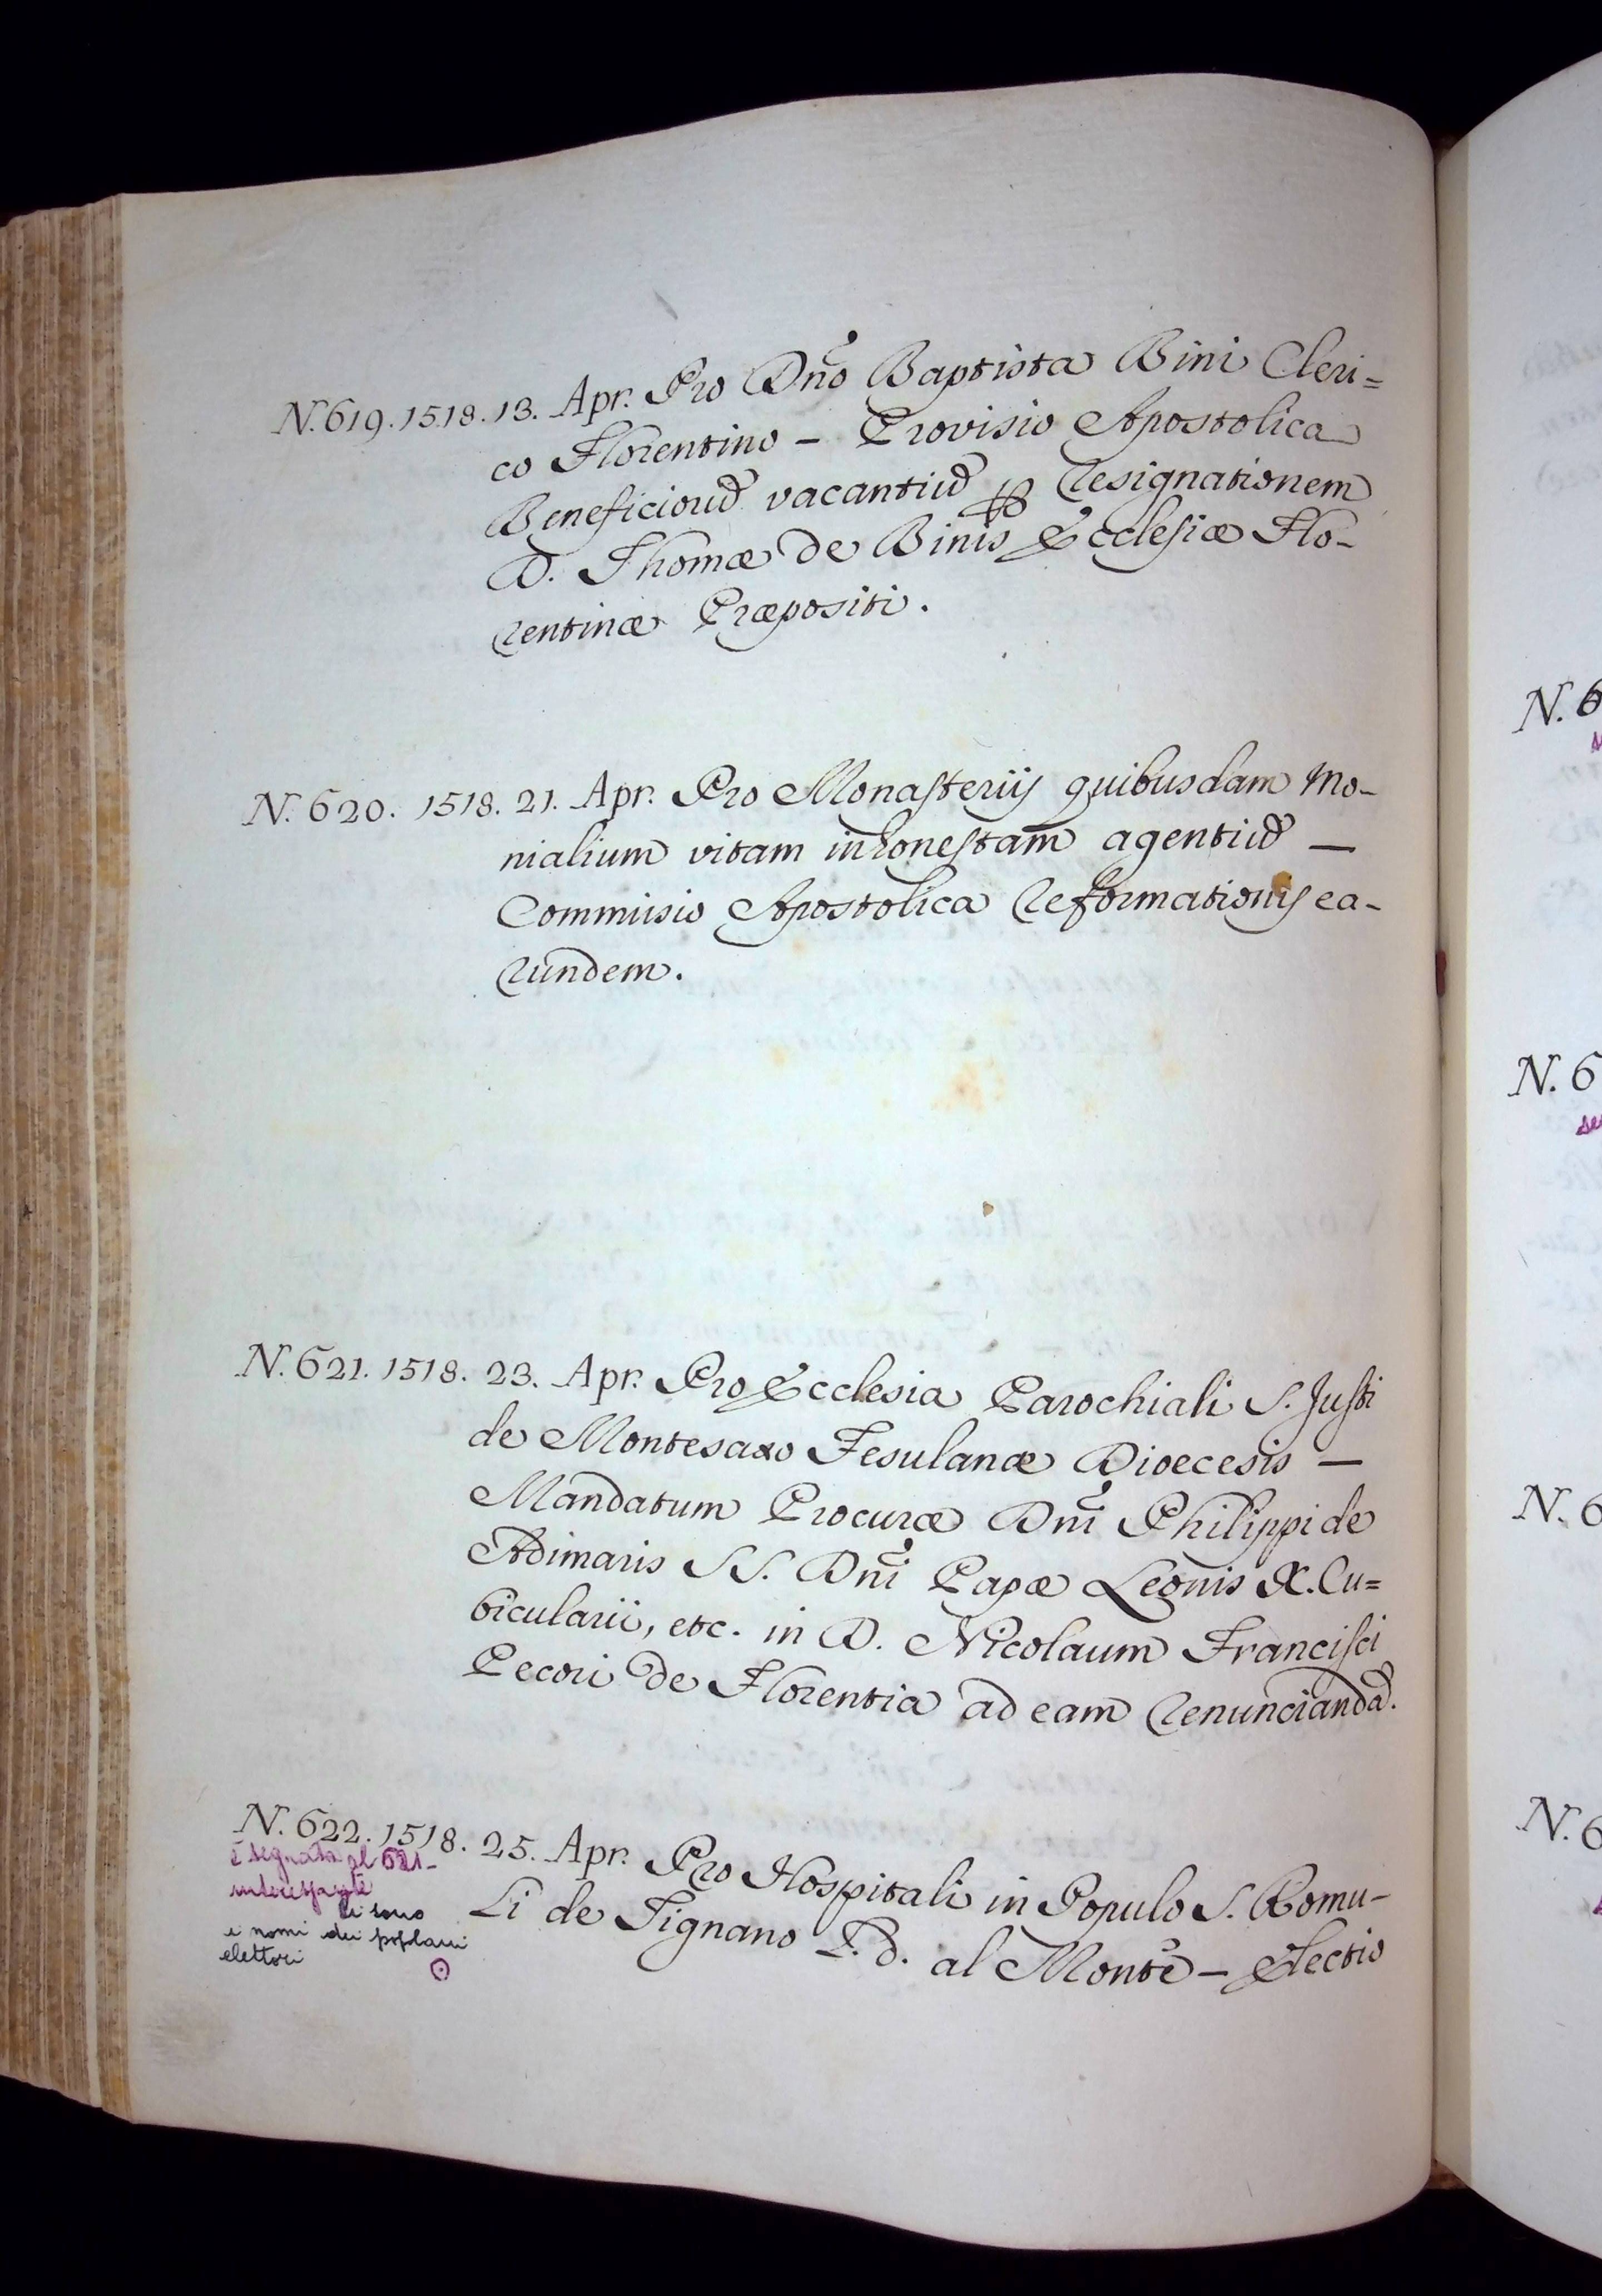 N. 619. 1518. 13. Apr. Pro Dño Baptista Bini Cleri=
co Florentino – Provisio Apostolica
Beneficioru᷉ vacantiu᷉ ꝑ Resignationem
D. Thomæ de Binis Ecclesiæ Flo-
rentinæ Præpositi.
N. 620. 1518. 21. Apr. Pro Monasteriis quibusdam Mo-
nialium vitam inhonestam agentiu᷉ –
Commisio Apostolica Reformationis ea-
rundem.
N. 621. 1518. 23. Apr. Pro Ecclesia Parochiali S. Justi
de Montesaxo Fesulanæ Dioecesis –
Mandatum Procuræ Dñi Philippi de
Adimaris SS. Dñi Papæ Leonis X. Cu=
bicularii, etc. in D. Nicolaum Francisci
Pecori de Florentia ad eam renunciandã.
N. 622. 1518. 25. Apr. Pro Hospitali in Populo S. Romu-
li de Tignano P. d. al Monte – Electio
è segnata al 621 –
interessante
ci sono
i nomi dei popolani
elettori
N. 6
N. 6
N. 6
N. 6